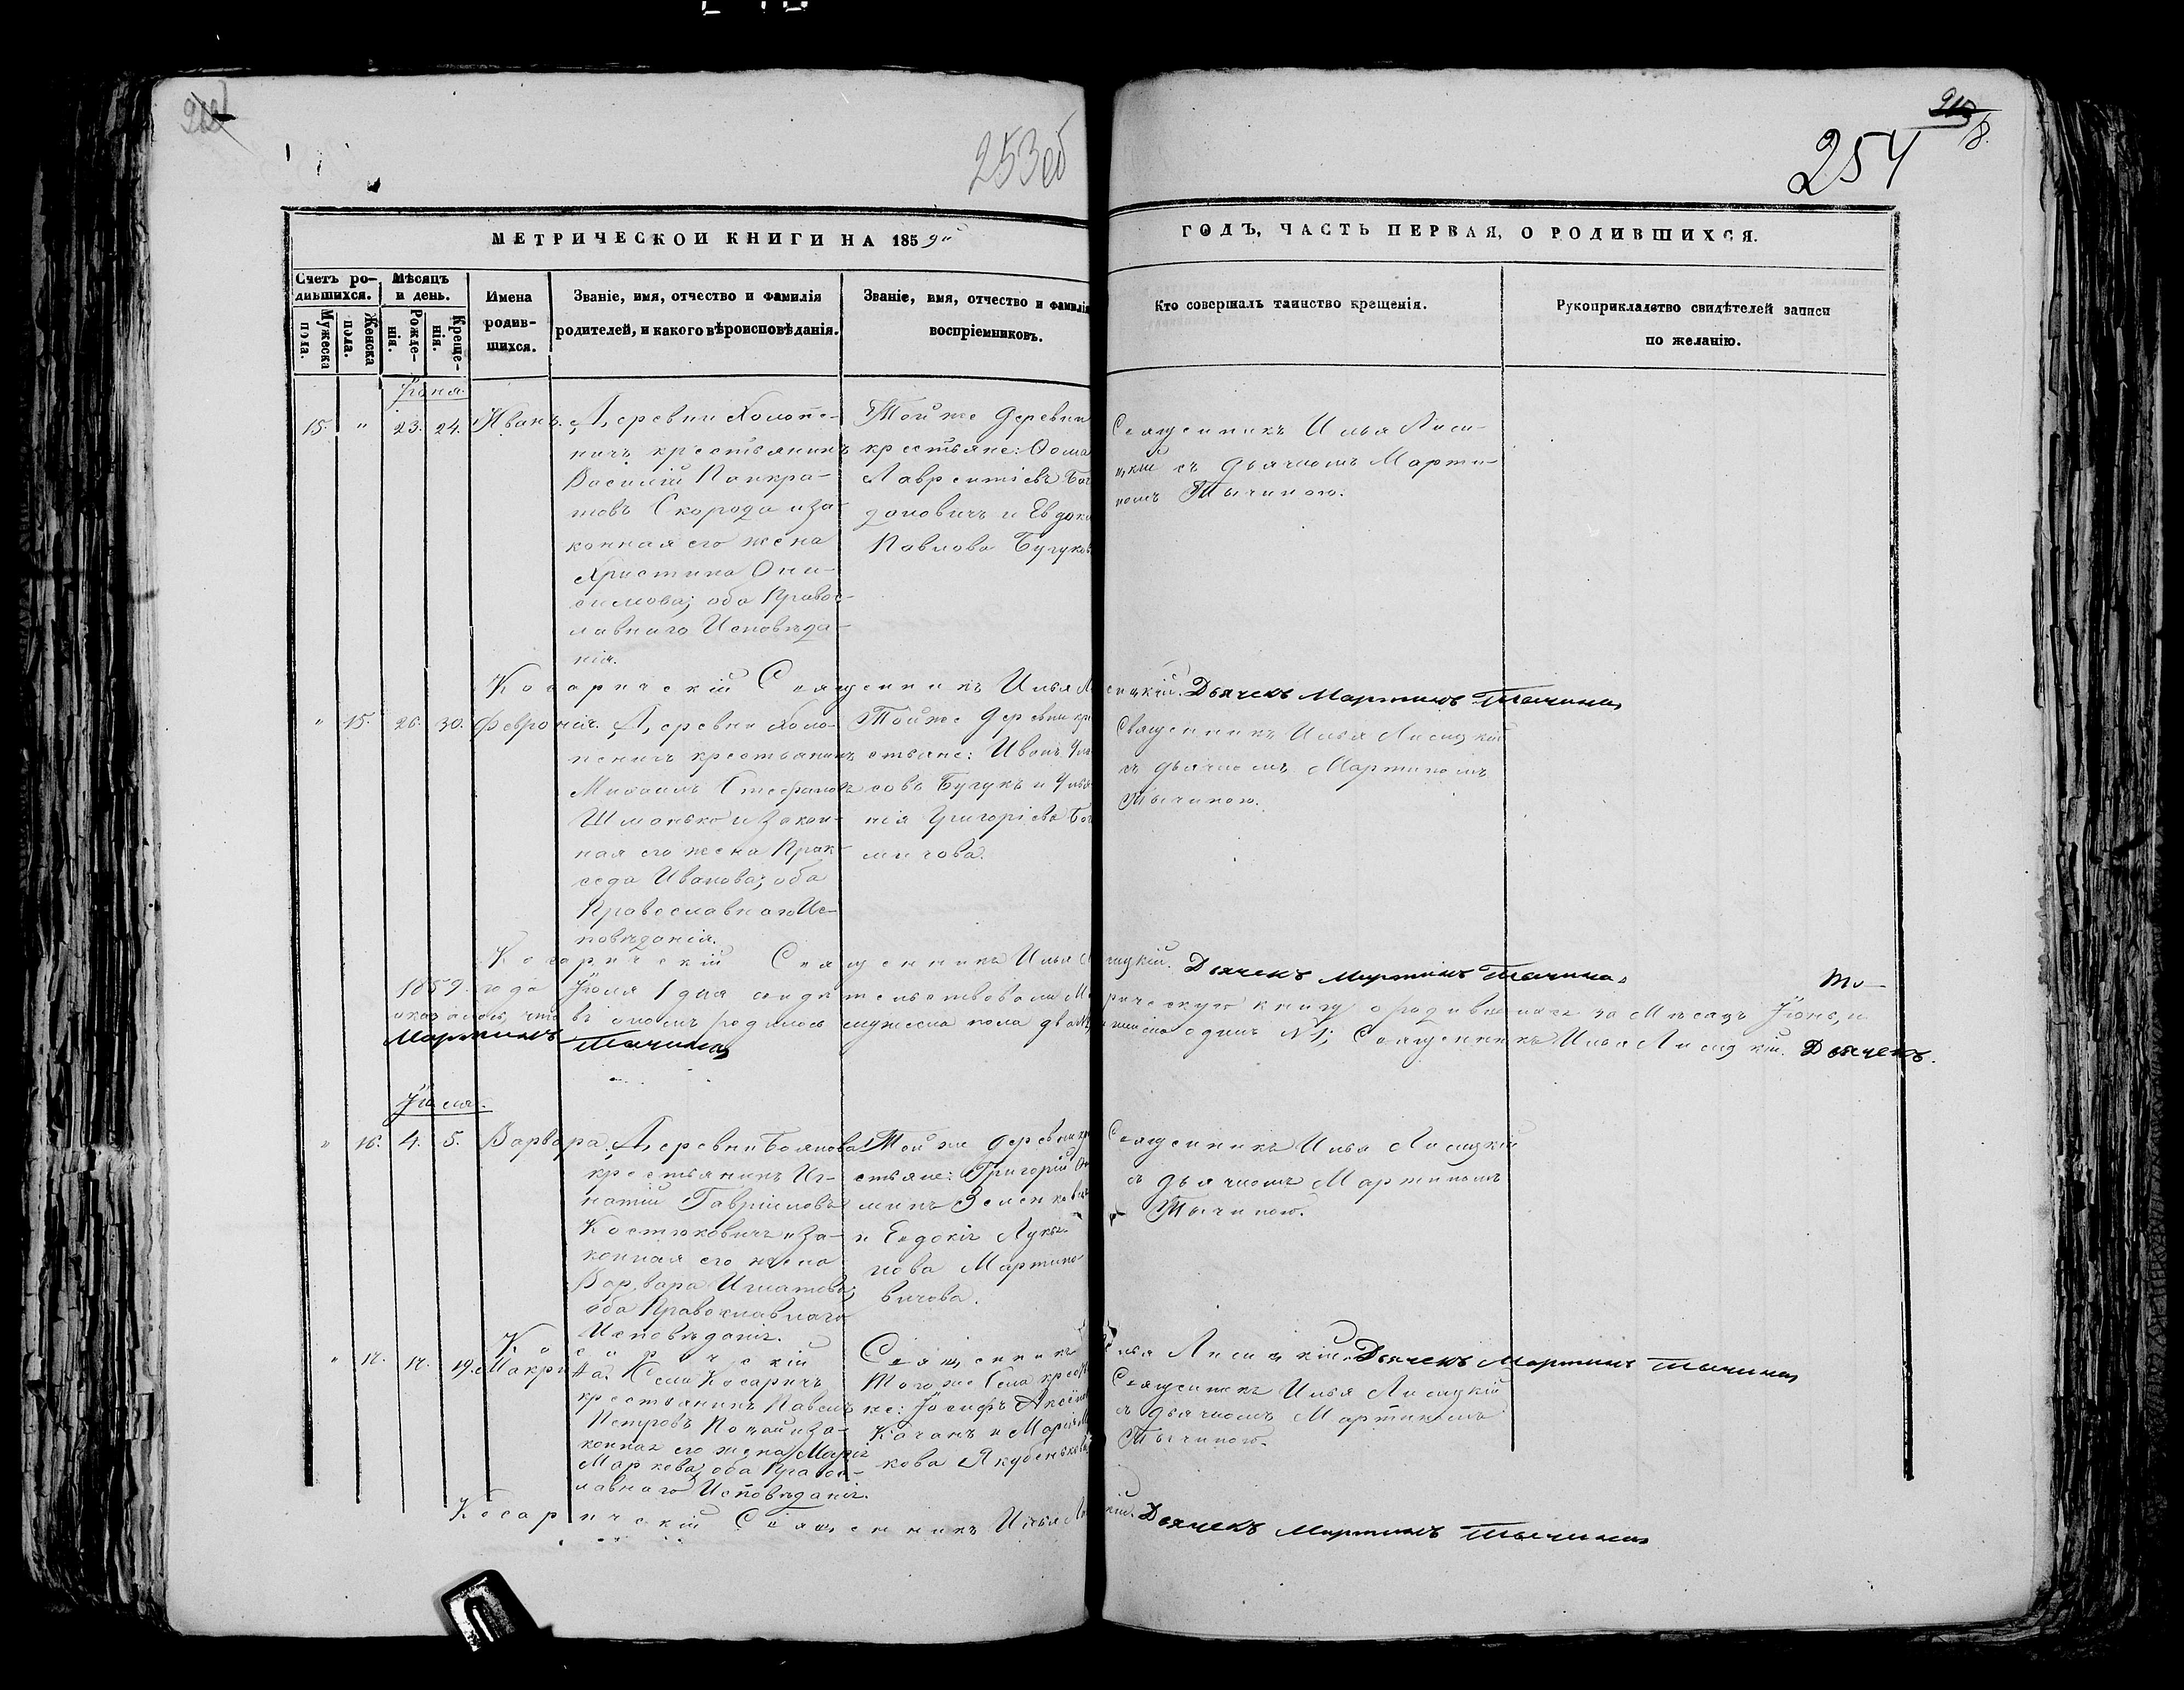 253об
254
МЕТРИЧЕСКОЙ КНИГИ НА 1859й
ГОДЪ, ЧАСТЬ ПЕРВАЯ, О РОДИВШИХСЯ.
Счетъ ро-
дившихся.
Мужеска
пола.
Женска
пола.
Мѣсяцъ
и день.
Рожде-
нія.
Креще-
нія.
Имена
родив-
шихся.
Званіе, имя, отчество и фамилія
родителей, и какого вѣроисповѣданія.
Званіе, имя, отчество и фамилія
воспріемниковъ.
Кто совершалъ таинство крещенія.
Рукоприкладство свидѣтелей записи
по желанію.
Іюня.
15. " 23. 24. Иванъ.
Деревни Холопе-
ничъ крестьянинъ
Василій Панкра-
товъ Скорода и за-
конная его жена
Христина Они-
симова; оба Правос-
лавнаго Исповѣда-
нія.
Той же деревни
крестьяне: Ѳома
Лаврентіевъ
и Евдокі
Павлова
Священникъ Илья Лиси-
цкій съ дьячкомъ Марти-
номъ Тычиною.
Косаричскій Священникъ Илья Лисицкій. Дьячекъ Мартинъ Тычина
" 15. 26. 30. Февронія.
Деревни Холо-
пеничъ крестьянинъ
Михаилъ Стефановъ
Шманько и закон-
ная его жена Прак-
седа Иванова; оба
Православнаго Ис-
повѣданія.
Той же деревни кре
стьяне: Иванъ
совъ Бугукъ и Улья
нія Григоріева
мичова.
Священникъ Илья Лисицкій
съ дьячкомъ Мартиномъ
Тычиною.
Косаричскій Священникъ Илья Лисицкій. Дьячекъ Мартинъ Тычина.
1859. года Іюля 1 дня свидѣтельствовали Метрическую книгу о родившихся за Мѣсяцъ Іюнь, и
оказалось, что въ ономъ родилось мужеска пола два № женска одинъ №1; Священникъ Илья Лисицкій. Дьячекъ
Мартинъ Тычина
Іюля.
" 16. 4. 5. Варвара.
Деревни Боянова
крестьянинъ Иг-
натій Гавріиловъ
Костюковичъ и за-
конная его жена
Варвара Игнатова;
оба Православнаго
Исповѣданія.
Той же деревни кре
стьяне: Григорій
минъ Зеленкевичъ
и Евдокія Лукья
нова Мартино
вичова.
Священникъ Илья Лисицкій
съ дьячкомъ Мартиномъ
Тычиною.
Косаричскій Священникъ Илья Лисицкій. Дьячекъ Мартинъ Тычина
" 17. 17. 19. Макрина.
Села Косаричъ
крестьянинъ Павелъ
Петровъ и за-
конная его жена Марія
Маркова; оба Правос-
лавнаго Исповѣданія.
Того же Села крестья
не: Іосифъ
Качанъ и Марія
кова Якубенькова
Священникъ Илья Лисицкій
съ дьячкомъ Мартиномъ
Тычиною.
Косаричскій Священникъ Илья Ли кій. Дьячекъ Мартинъ Тычина